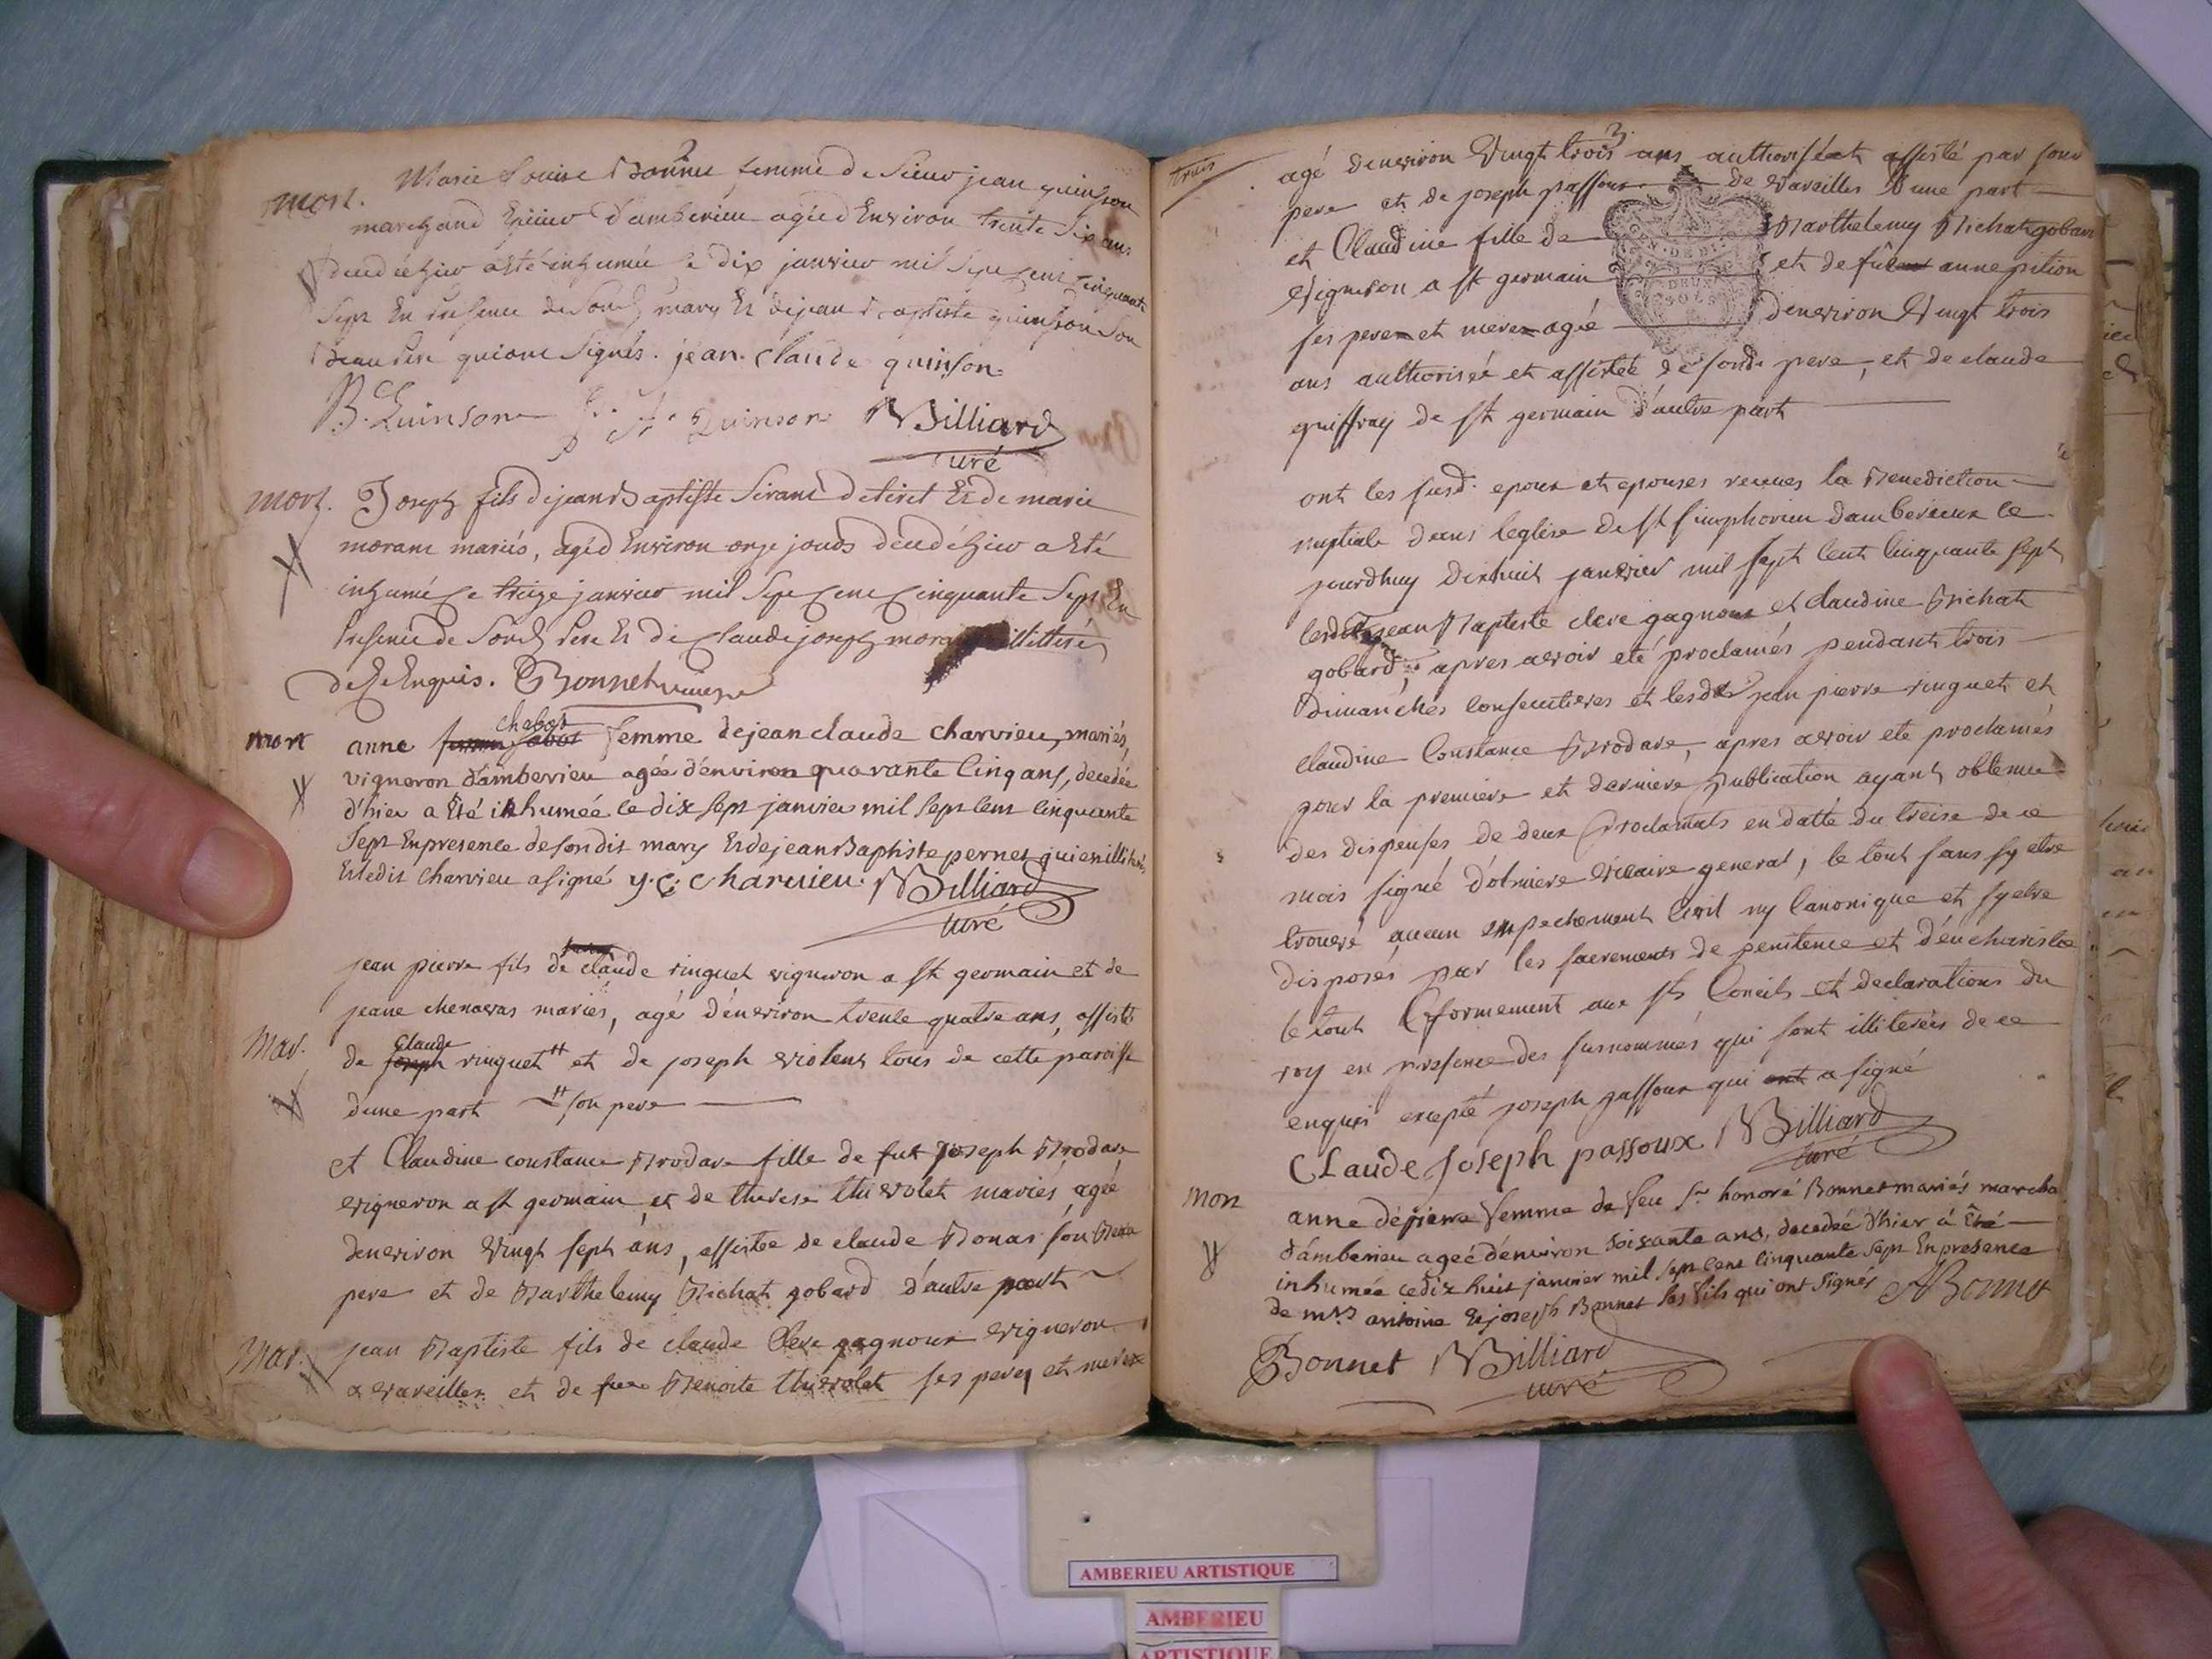 2
mort.
Marie Louise Bonnet femme de Sieur jean quinson
marchand Epicier d'amberieu agée d Environ trente Six ans
decedée hier a Eté inhumée le dix janvier mil Sept Cent Cinquante
Sept En presence de Sond mary Et de jean Baptiste quinson Son
Beau Pere qui ont Signés. jean. claude quinson.
B. Quinson Quinson Billiard
curé
mort.
Joseph fils de jean Baptiste Sirand de tiret Et de marie
morant mariés, agé d Environ onze jours decedé hier a Eté
inhumé Ce treize janvier mil Sept Cent Cinquante Sept En
Presence de Sond Pere Et de Claude joseph illitterés
de Ce Enquis. Bonnet vicaire
mort
chabot
anne femme de jean claude charvieu, mariés,
vigneron d'amberieu agée d'environ quarante Cinq ans, decedée
d'hier a Eté inhumée ce dix sept janvier mil sept Cent Cinquante
Sept En presence de son dit mary Et de jean Baptiste pernet qui est illitéré,
Et ledit Charvieu a signé y. c: charuieu. Billiard
curé
jean pierre fils de claude ringuet vigneron a st germain et de
jeane chenavas mariés, agé d'énviron trente quatre ans, assisté
Mar.
claude
de joseph ringuet # et de joseph violent tous de cette paroisse
dune part # son pere
et Claudine constance Brodare fille de fut joseph Brodare
vigneron a st germain et de therese thievolet mariés, agée
denviron vingt sept ans, assistée de claude Bonas son Beau
pere et de Barthelemy Michat gobard d'autre part
Mar.
jean Baptiste fils de claude Clerc gagnoux vigneron
a vareilles et de feue Benoite thievolet ses peres et meres
3.
trois
agé denviron vingt trois ans authorisé et assisté par sond
pere et de joseph passoux de vareilles d'une part
et Claudine fille de Barthelemy Michat gobard
vigneron a st germain et de fûe anne pition
GEN. DE DI
DEUX
SOLS
ses pere et mere agée denviron vingt trois
ans authorisée et assistée de sond. pere, et de claude
quiffray de st germain d'autre part
ont les susd. epoux et epouses receues la Benediction
nuptiale dans leglise de st simphorien damberieux ce
jourdhuy dixhuit janvier mil sept Cent Cinquante sept
lesdts jean Baptiste clerc gagnoux et claudine Michat
gobard, apres avoir eté proclamés pendant trois
dimanches Consecutives et lesdts jean pierre ringuet et
claudine Constance Brodare, apres avoir eté proclamés
pour la premiere et derniere publication ayant obtenu
des dispenses de deux proclamats en datte du treise de ce
mois signé dolmiere vicaire general, le tout sans sy etre
trouvé aucun empechement Civil ny Canonique et sy etre
disposés par les sacrements de penitence et d'eucharistie
le tout Cformement aux sts Conciles et declarations du
roy en presence des susnommés qui sont illiterés de ce
enquis excepté joseph passoux qui ont a signé
Claude joseph passoux Billiard
curé
mort
anne dépierre femme de feu Sr honoré Bonnet mariés marchd
d'amberieu ageé d'environ soixante ans, decedeé d'hier à Eté
inhumée ce dix huit janvier mil sept Cent Cinquante Sept En presence
de mrs antoine Et joseph Bonnet ses fils qui ont signés ABonnet
Bonnet Billiard
curé
AMBERIEU ARTISTIQUE
AMBERIEU
ARTISTIQUE